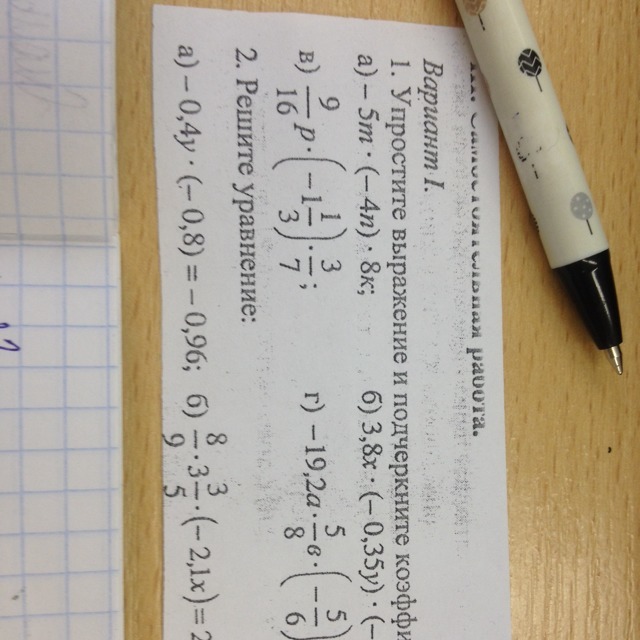 Самостоятельная работа.
Вариант I.
1. Упростите выражение и подчеркните коэффи
а) – 5m · (–4n) · 8к; б) 3,8x · (–0,35y) · (–
в) 9/16 p · (–1 1/3) · 3/7; г) –19,2a · 5/8 в · (–5/6)
2. Решите уравнение:
а) – 0,4y · (– 0,8) = – 0,96; б) 8/9 · 3 3/5 · (– 2,1x) = 2